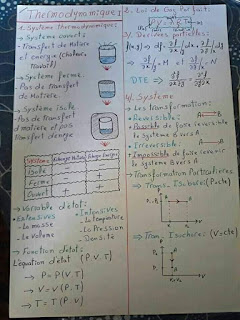 Thermodynamique I
1. Système thermodynamique
→ Système ouvert:
- Transfert de Matière
et energie (chaleur,
travail)
→ Système fermé:
- Pas de transfert
de Matière
→ Système isolé
- Pas de transfert
de matière et pas
Transfert d'energie
Système | Echange Matière | Echange Energie
Isolé - -
Fermé - +
Ouvert + +
→ Variable d'état:
- Extensives
- La masse
- Le volume
- Intensives
- La température
- La Pression
- Densité
→ Fonction d'état:
L'équation d'état (P.V.T)
→ P = P(V.T)
→ V = V(P.T)
→ T = T(P.V)
2. Loi de Gaz Parfait:
P.V = n.R.T
3. Dérivées partielles:
4. Système
→ Les Transformations:
- Réversible:
Possible de faire revenir
le système B vers A
- Irréversible:
Impossible de faire revenir
le système B vers A
→ Transformation Particulières
⇒ Trans. Isobare (P=cte)
⇒ Trans. Isochore: (V=cte)